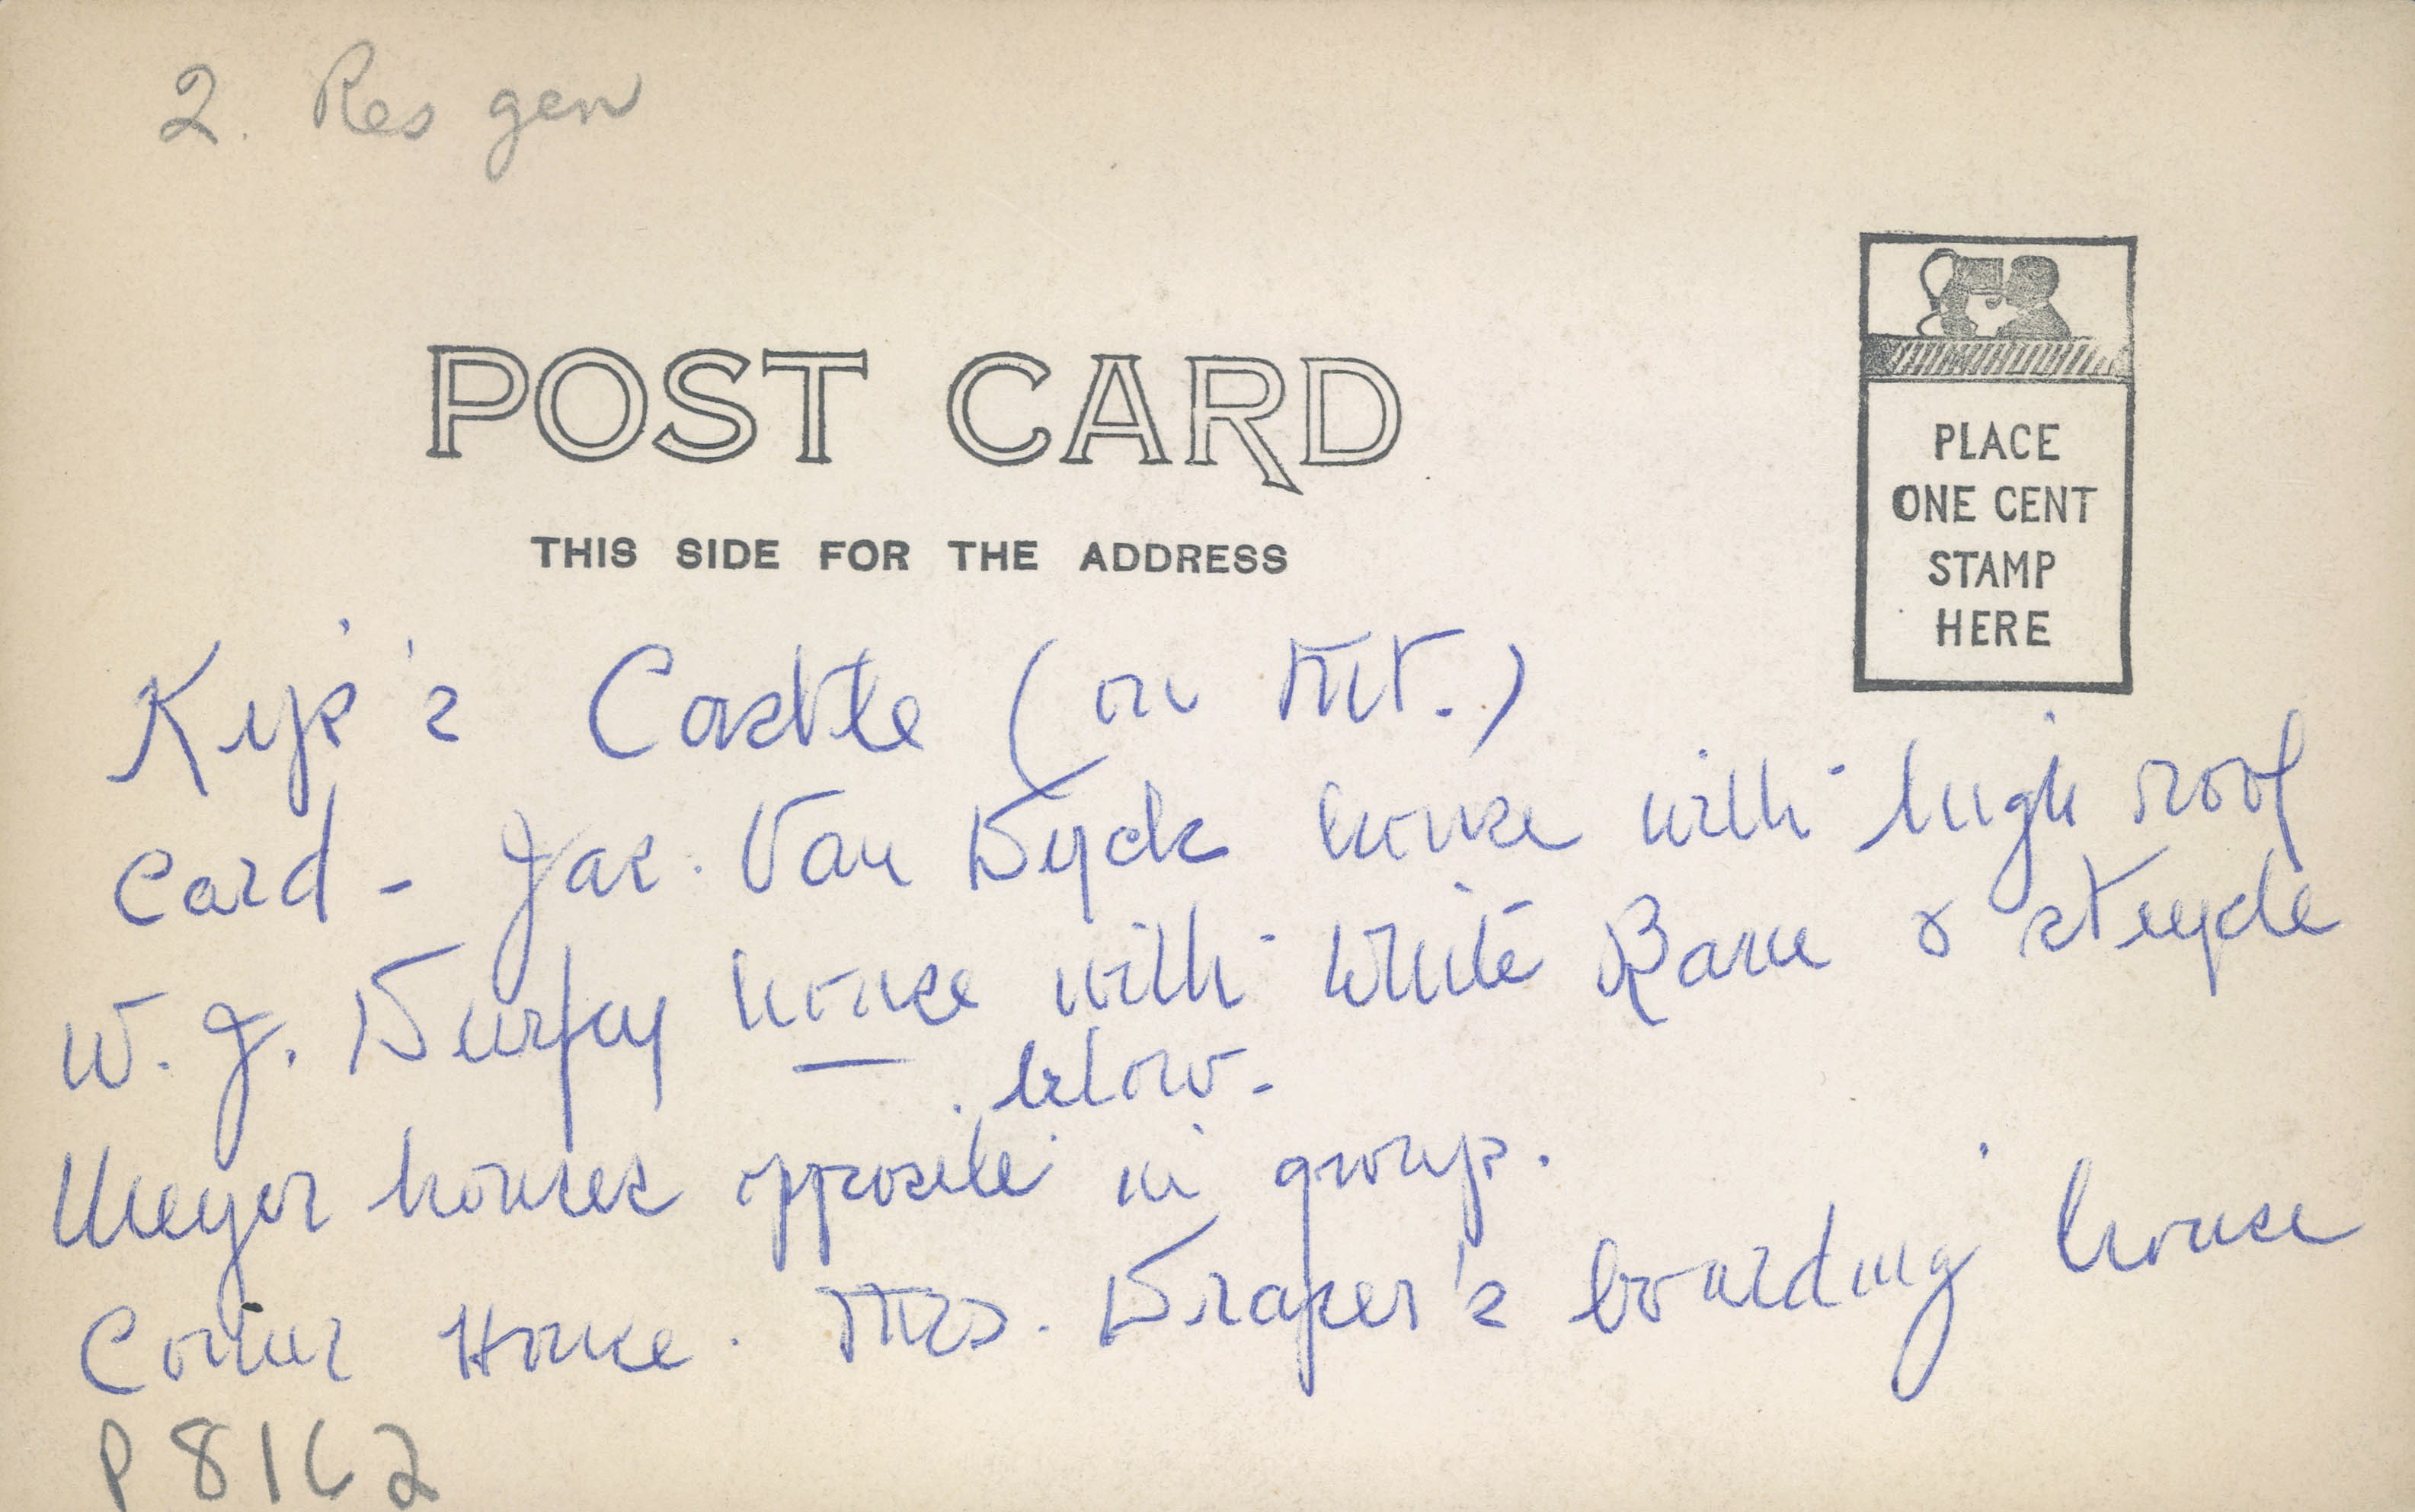 2. Res gen
POST CARD
THIS SIDE FOR THE ADDRESS
PLACE
ONE CENT
STAMP
HERE
Kip's Castle (on Mt.)
Card - Jas. Van Dyck house with high roof
W. J. Durfey house with white Barn &
below.
Meyer houses opposite in group.
Corner House. Mrs. Draper's boarding house
P8162